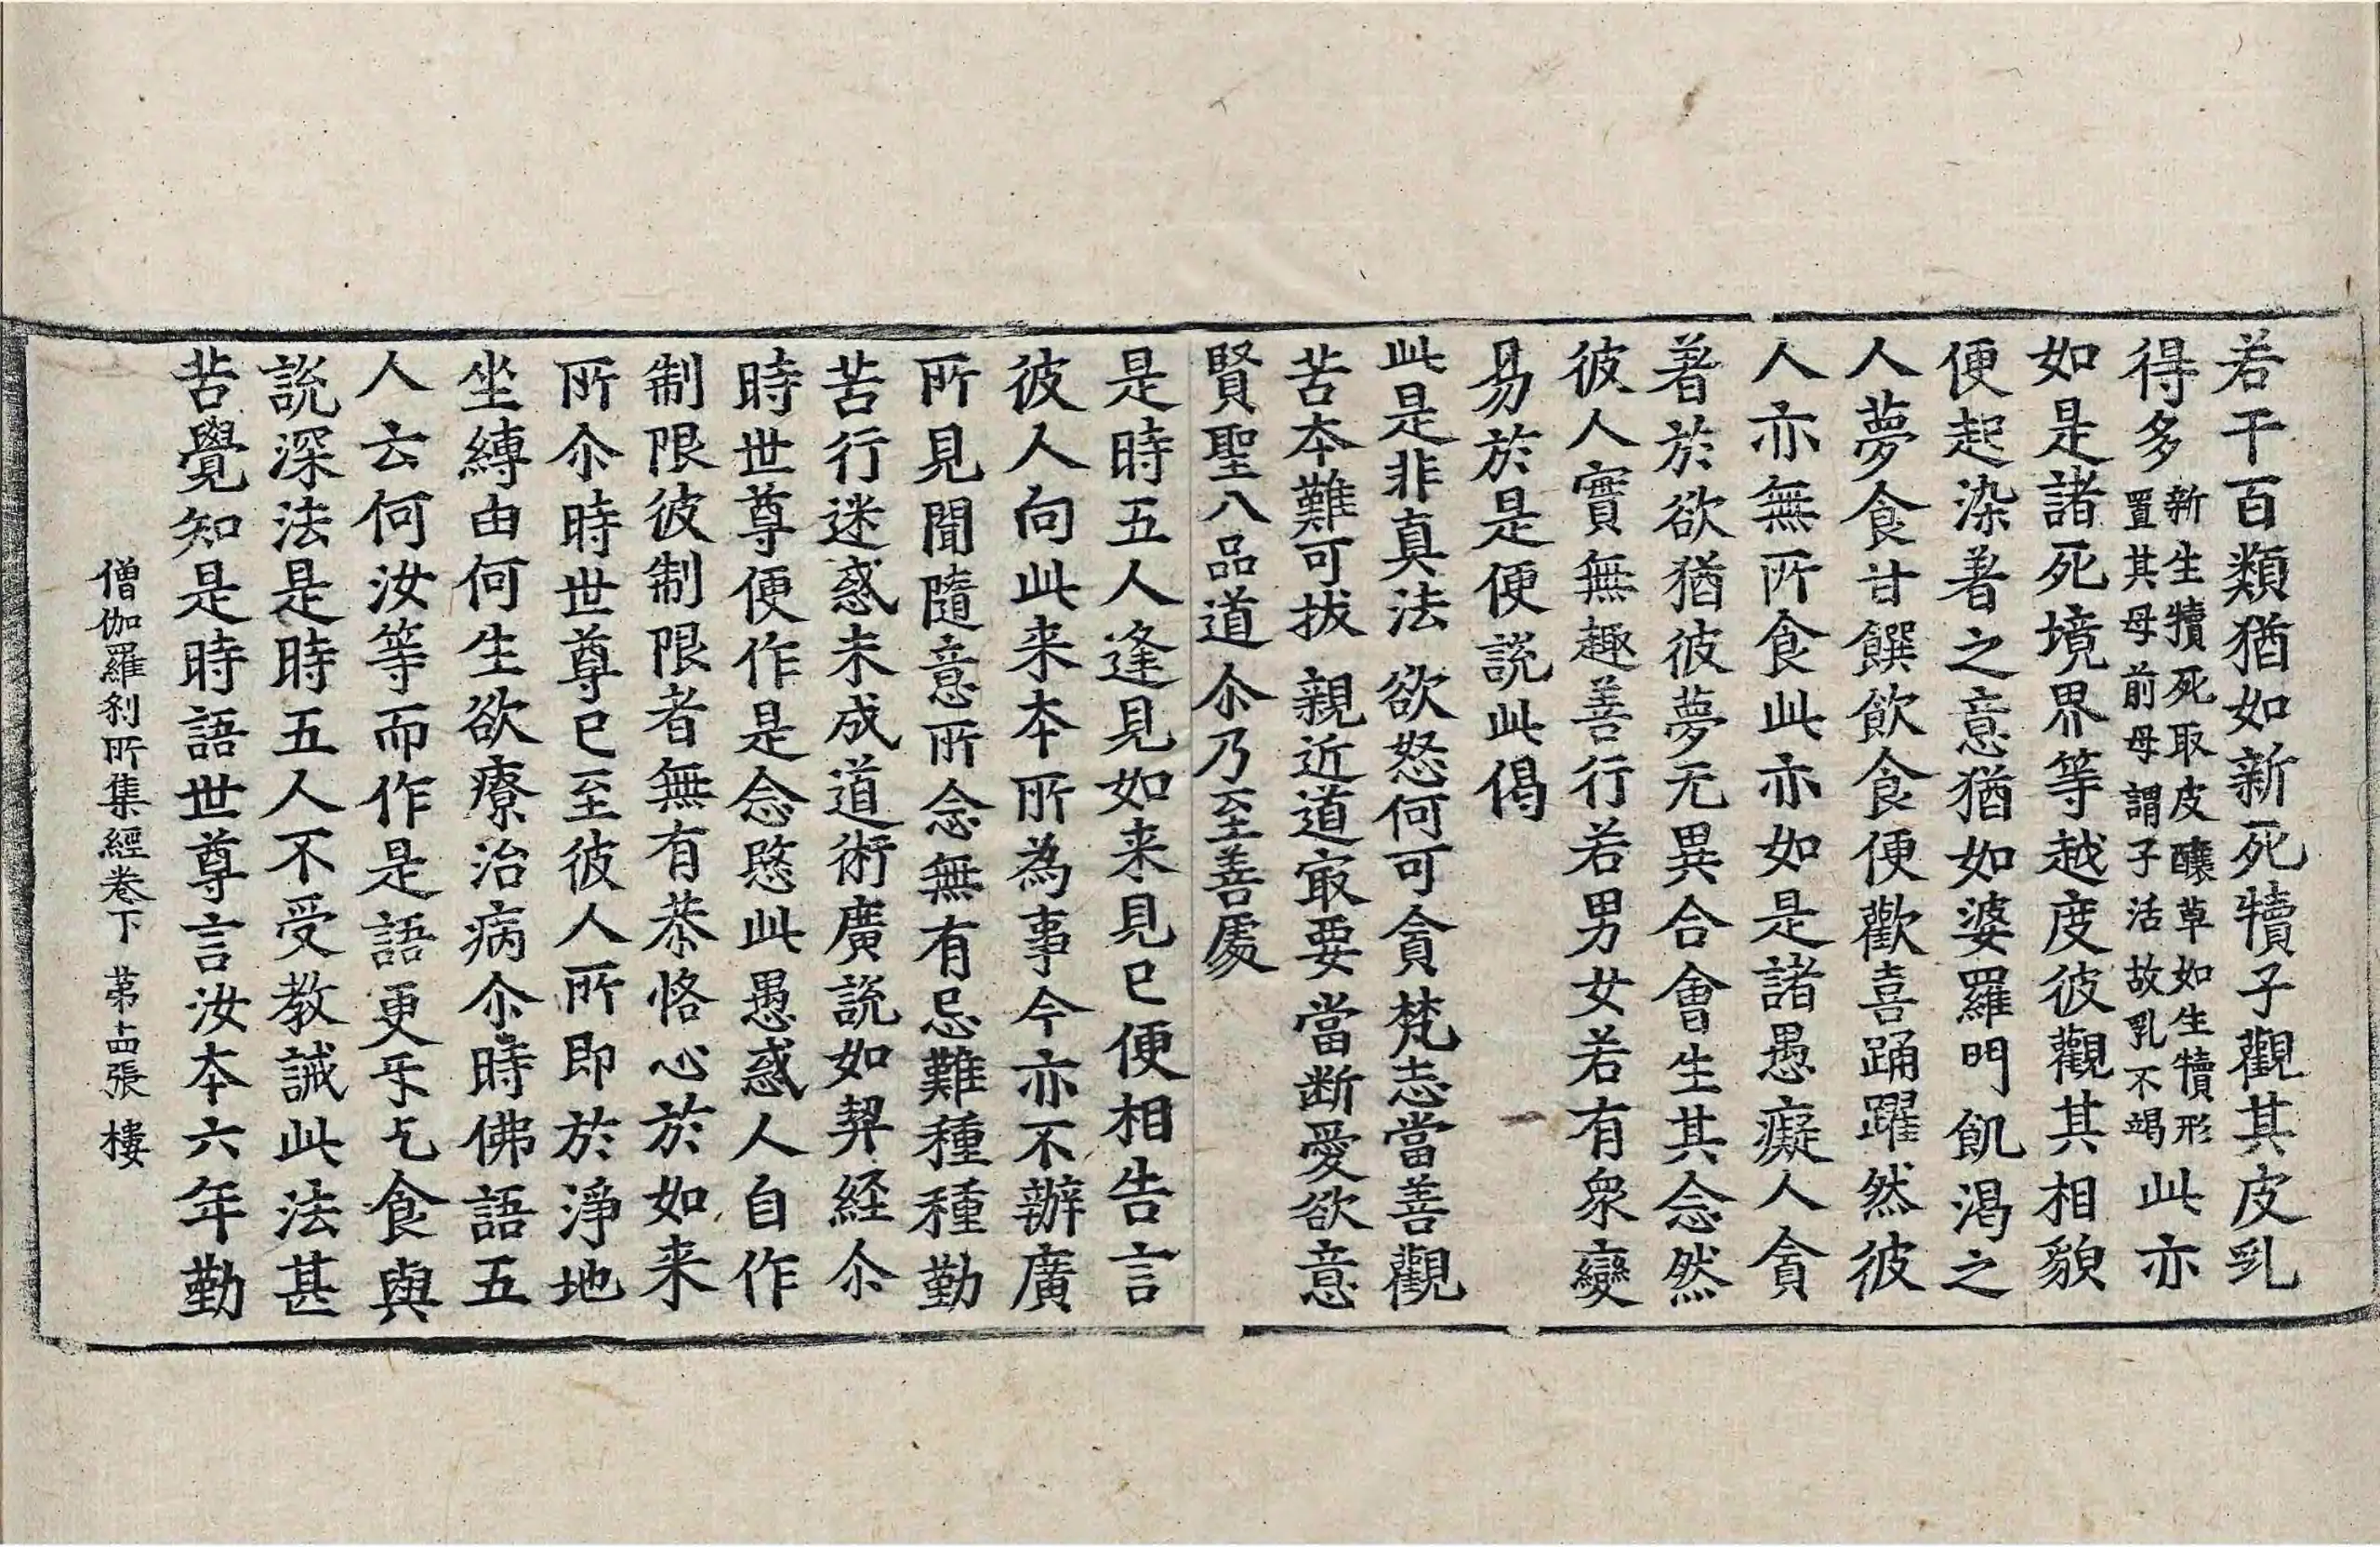 若干百類猶如新死犢子觀其皮乳
得多新生犢死取皮釀草如生犢形置其母前母謂子活故乳不竭此亦
如是諸死境界等越度彼觀其相貌
便起染著之意猶如婆羅門飢渴之
人夢食甘饌飲食便歡喜踊躍然彼
人亦無所食此亦如是諸愚癡人貪
著於欲猶彼夢无異合會生其念然
彼人實無趣善行若男女若有衆變
易於是便說此偈
此是非真法 欲怒何可貪 梵志當善觀
苦本難可拔 親近道㝡要 當断愛欲意
賢聖八品道 尒乃至善處
是時五人逢見如来見已便相告言
彼人向此来本所為事今亦不辦廣
所見聞隨意所念無有忌難種種勤
苦行迷惑未成道術廣說如契経尒
時世尊便作是念愍此愚惑人自作
制限彼制限者無有恭恪心於如来
所尒時世尊已至彼人所即於淨地
坐縛由何生欲療治病尒時佛語五
人云何汝等而作是語更乐乞食與
說深法是時五人不受教誡此法甚
苦覺知是時語世尊言汝本六年勤
僧伽羅刹所集經卷下 苐𠧩張 樓